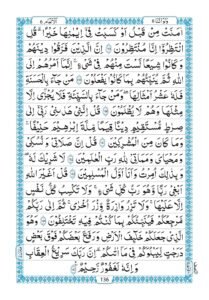 اٰمَنَتْ مِنْ قَبْلُ اَوْ كَسَبَتْ فِیْۤ اِیْمَانِهَا خَیْرًا ؕ قُلِ
انْتَظِرُوْۤا اِنَّا مُنْتَظِرُوْنَ اِنَّ الَّذِیْنَ فَرَّقُوْا دِیْنَهُمْ
وَ كَانُوْا شِیَعًا لَّسْتَ مِنْهُمْ فِیْ شَیْءٍ ؕ اِنَّمَاۤ اَمْرُهُمْ اِلَی
اللّٰهِ ثُمَّ یُنَبِّئُهُمْ بِمَا كَانُوْا یَفْعَلُوْنَ مَنْ جَآءَ بِالْحَسَنَةِ
فَلَهٗ عَشْرُ اَمْثَالِهَا ۚ وَ مَنْ جَآءَ بِالسَّیِّئَةِ فَلَا یُجْزٰۤی اِلَّا
مِثْلَهَا وَ هُمْ لَا یُظْلَمُوْنَ قُلْ اِنَّنِیْ هَدٰىنِیْ رَبِّیْۤ اِلٰی
صِرَاطٍ مُّسْتَقِیْمٍ ۚ دِیْنًا قِیَمًا مِّلَّةَ اِبْرٰهِیْمَ حَنِیْفًا ۚ
وَ مَا كَانَ مِنَ الْمُشْرِكِیْنَ قُلْ اِنَّ صَلَاتِیْ وَ نُسُكِیْ
وَ مَحْیَایَ وَ مَمَاتِیْ لِلّٰهِ رَبِّ الْعٰلَمِیْنَ لَا شَرِیْكَ لَهٗ ۚ
وَ بِذٰلِكَ اُمِرْتُ وَ اَنَا اَوَّلُ الْمُسْلِمِیْنَ قُلْ اَغَیْرَ اللّٰهِ
اَبْغِیْ رَبًّا وَّ هُوَ رَبُّ كُلِّ شَیْءٍ ؕ وَ لَا تَكْسِبُ كُلُّ نَفْسٍ
اِلَّا عَلَیْهَا ۚ وَ لَا تَزِرُ وَازِرَةٌ وِّزْرَ اُخْرٰی ۚ ثُمَّ اِلٰی رَبِّكُمْ
مَّرْجِعُكُمْ فَیُنَبِّئُكُمْ بِمَا كُنْتُمْ فِیْهِ تَخْتَلِفُوْنَ وَ هُوَ
الَّذِیْ جَعَلَكُمْ خَلٰٓئِفَ الْاَرْضِ وَ رَفَعَ بَعْضَكُمْ فَوْقَ بَعْضٍ
دَرَجٰتٍ لِّیَبْلُوَكُمْ فِیْ مَاۤ اٰتٰىكُمْ ؕ اِنَّ رَبَّكَ سَرِیْعُ الْعِقَابِ
وَ اِنَّهٗ لَغَفُوْرٌ رَّحِیْمٌ
136